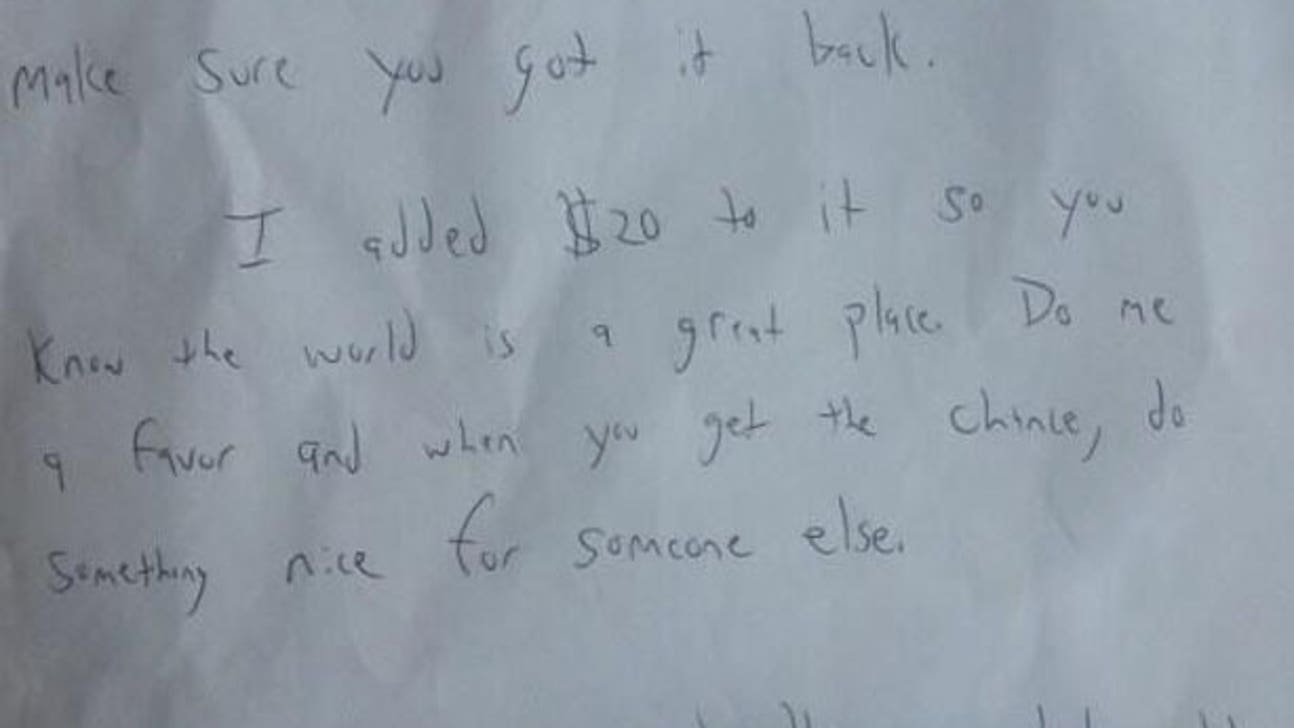 make sure you got it back.
I added $20 to it so you
know the world is a great place. Do me
a favor and when you get the chance, do
something nice for someone else.